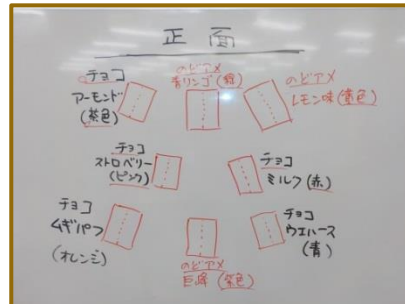 正面
チョコ
アーモンド
(茶色)
のどアメ
青リンゴ(緑)
のどアメ
レモン味(黄色)
チョコ
ストロベリー
(ピンク)
チョコ
ミルク(赤)
チョコ
ムギパフ
(オレンジ)
のどアメ
巨峰(紫色)
チョコ
ウエハース
(青)